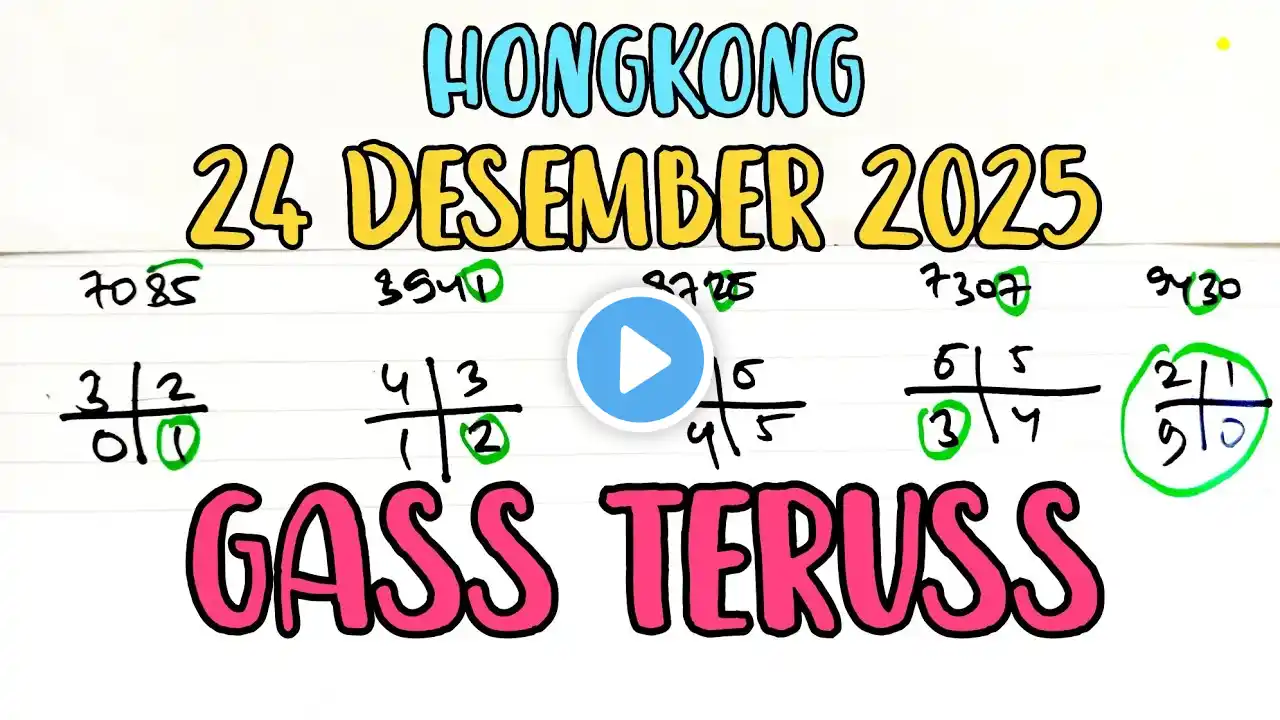 HONGKONG
24 DESEMBER 2025
7085 3941 7307 9430
3 2 4 3 6 6 5 2 1
0 1 1 2 4 5 3 4 9 0
GASS TERUSS